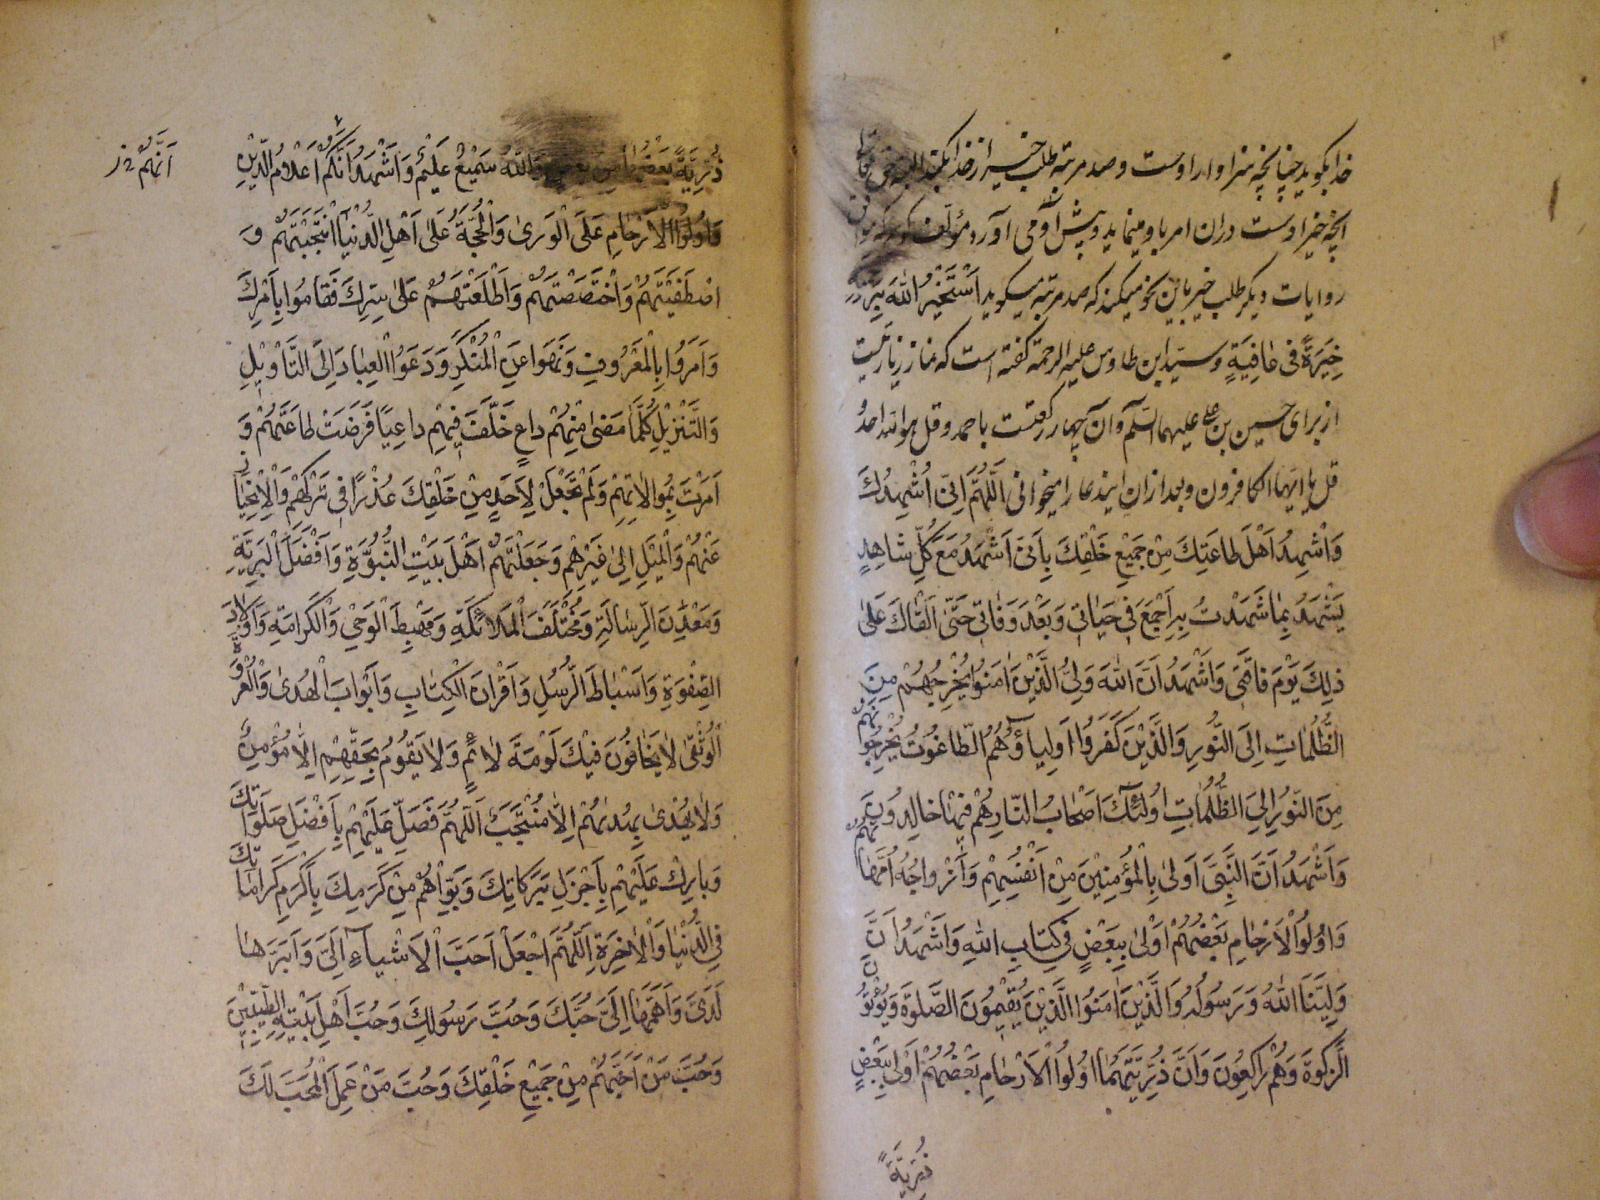 خدا بگوید چنانچه سزاوار اوست و صد مرتبه طلب خیر از خدا بکند البته حق تعالی
آنچه خیر اوست در آن امر باو مینماید و پیش او می آورد مؤلف گوید که موافق
روایات دیگر طلب خیر باین نحو میکند که صد مرتبه میگوید اَسْتَخیرُ اللهَ بِرَحْمَتِهِ
خِیَرَةً فی عافِیَةٍ و سید ابن طاوس علیه الرحمة گفته است که نماز زیارتیست
از برای حسین بن علی علیهما السلام و آن چهار رکعتست با حمد و قل هو الله احد
قل یا ایها الکافرون و بعد از آن ایندعا را میخوانی اَللّهُمَّ اِنّی اُشْهِدُكَ
وَاُشْهِدُ اَهْلَ طاعَتِكَ مِنْ جَمیعِ خَلْقِكَ بِاَنّی اَشْهَدُ مَعَ كُلِّ شاهِدٍ
یَشْهَدُ بِما شَهِدْتُ بِهِ اَجْمَعَ فی حَیاتی وَبَعْدَ وَفاتی حَتّی اَلْقاكَ عَلی
ذلِكَ یَوْمَ فاقَتی وَاَشْهَدُ اَنَّ اللهَ وَلِیُّ الَّذینَ امَنُوا یُخْرِجُهُمْ مِنَ
الظُّلُماتِ اِلَی النُّورِ وَالَّذینَ كَفَرُوا اَوْلِیاؤُهُمُ الطّاغُوتُ یُخْرِجُونَهُمْ
مِنَ النُّورِ اِلَی الظُّلُماتِ اُولئِكَ اَصْحابُ النّارِ هُمْ فیها خالِدُونَ
وَاَشْهَدُ اَنَّ النَّبِیَّ اَوْلی بِالْمُؤْمِنینَ مِنْ اَنْفُسِهِمْ وَاَزْواجُهُ اُمَّهاتُهُمْ
وَاُولُوا الْاَرْحامِ بَعْضُهُمْ اَوْلی بِبَعْضٍ فی كِتابِ اللهِ وَاَشْهَدُ اَنَّ
وَلِیَّنَا اللهُ وَرَسُولُهُ وَالَّذینَ امَنُوا الَّذینَ یُقیمُونَ الصَّلوةَ وَیُؤْتُونَ
الزَّكوةَ وَهُمْ راكِعُونَ وَاَنَّ ذُرِّیَّتَهُما اُولُوا الْاَرْحامِ بَعْضُهُمْ اَوْلی بِبَعْضٍ
ذُرِّیَّةً
ذُرِّیَّةً بَعْضُها مِنْ بَعْضٍ وَاللهُ سَمیعٌ عَلیمٌ وَاَشْهَدُ اَنَّكُمْ اَعْلامُ الدّینِ
اَنَّهُمْ خ ز
وَاُولُوا الْاَرْحامِ عَلَی الْوَری وَالْحُجَّةُ عَلی اَهْلِ الدُّنْیا انْتَجَبْتَهُمْ وَ
اصْطَفَیْتَهُمْ وَاخْتَصَصْتَهُمْ وَاَطْلَعْتَهُمْ عَلی سِرِّكَ فَقامُوا بِاَمْرِكَ
وَاَمَرُوا بِالْمَعْرُوفِ وَنَهَوْا عَنِ الْمُنْكَرِ وَدَعَوُا الْعِبادَ اِلَی التَّأْویلِ
وَالتَّنْزیلِ كُلَّما مَضی مِنْهُمْ داعٍ خَلَّفَ فیهِمْ داعِیًا فَرَضْتَ طاعَتَهُمْ وَ
اَمَرْتَ بِمُوالاتِهِمْ وَلَمْ تَجْعَلْ لِاَحَدٍ مِنْ خَلْقِكَ عُذْرًا فی تَرْكِهِمْ وَالْاِنْحِیازِ
عَنْهُمْ وَالْمَیْلِ اِلی غَیْرِهِمْ وَجَعَلْتَهُمْ اَهْلَ بَیْتِ النُّبُوَّةِ وَاَفْضَلَ الْبَرِیَّةِ
وَمَعْدِنَ الرِّسالَةِ وَمُخْتَلَفَ الْمَلائِكَةِ وَمَهْبِطَ الْوَحْیِ وَالْكَرامَةِ وَاَوْلادَ
الصِّفْوَةِ وَاَسْباطَ الرُّسُلِ وَاَقْرانَ الْكِتابِ وَاَبْوابَ الْهُدی وَالْعُرْوَةَ
الْوُثْقی لا یَخافُونَ فیكَ لَوْمَةَ لائِمٍ وَلا یَقُومُ بِحَقِّهِمْ اِلّا مُؤْمِنٌ
وَلا یُهْدی بِهُدیهُمْ اِلّا مُنْتَجَبٌ اَللّهُمَّ فَصَلِّ عَلَیْهِمْ بِاَفْضَلِ صَلَواتِكَ
وَبارِكْ عَلَیْهِمْ بِاَجْزَلِ بَرَكاتِكَ وَبَوِّئْهُمْ مِنْ كَرَمِكَ بِاَكْرَمِ كَراماتِكَ
فِی الدُّنْیا وَالْاخِرَةِ اَللّهُمَّ اجْعَلْ اَحَبَّ الْاَشْیاءِ اِلَیَّ وَاَبَرَّها
لَدَیَّ وَاَهَمَّها اِلَیَّ حُبَّكَ وَحُبَّ رَسُولِكَ وَحُبَّ اَهْلِ بَیْتِهِ الطَّیِّبینَ
وَحُبَّ مَنْ اَحَبَّهُمْ مِنْ جَمیعِ خَلْقِكَ وَحُبَّ مَنْ عَمِلَ الْمُحَبَّ لَكَ